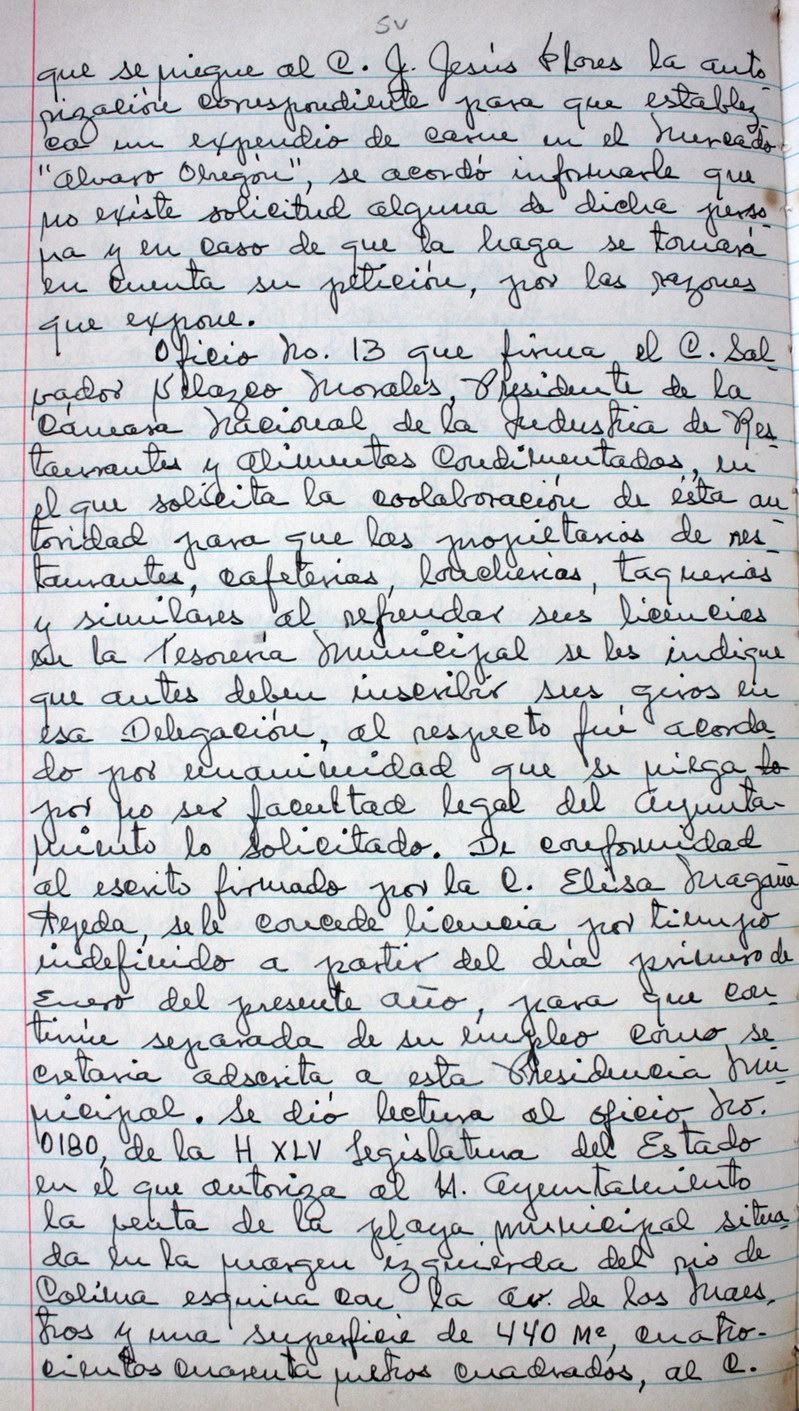 5v
que se niegue al C. J. Jesús Flores la auto-
rización correspondiente para que establez-
ca un expendio de carne en el Mercado
"Alvaro Obregón", se acordó informarle que
no existe solicitud alguna de dicha perso-
na y en caso de que la haga se tomará
en cuenta su petición, por las razones
que expone.
Oficio No. 13 que firma el C. Sal-
vador Velazco Morales, Presidente de la
Cámara Nacional de la Industria de Res-
taurantes y Alimentos Condimentados, en
el que solicita la coolaboración de ésta au-
toridad para que los propietarios de res-
taurantes, cafeterias, loncherias, taquerias
y similares al refrendar sus licencias
en la Tesorería Municipal se les indique
que antes deben inscribir sus giros en
esa Delegación, al respecto fué acorda-
do por unanimidad que se niega lo
por no ser facultad legal del Ayunta-
miento lo solicitado. De conformidad
al escrito firmado por la C. Elisa Magaña
Tejeda, se le concede licencia por tiempo
indefinido a partir del día primero de
Enero del presente año, para que con-
tinúe separada de su empleo como se-
cretaria adscrita a esta Presidencia Mu-
nicipal. Se dió lectura al oficio No.
0180, de la H XLV Legislatura del Estado
en el que autoriza al H. Ayuntamiento
la venta de la playa municipal situa-
da en la margen izquierda del rio de
Colima esquina con la av. de los Maes-
tros y una superficie de 440 M², cuatro-
cientos cuarenta metros cuadrados, al C.